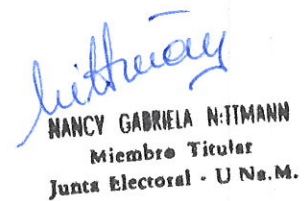 NANCY GABRIELA NITTMANN
Miembro Titular
Junta Electoral - U Na.M.